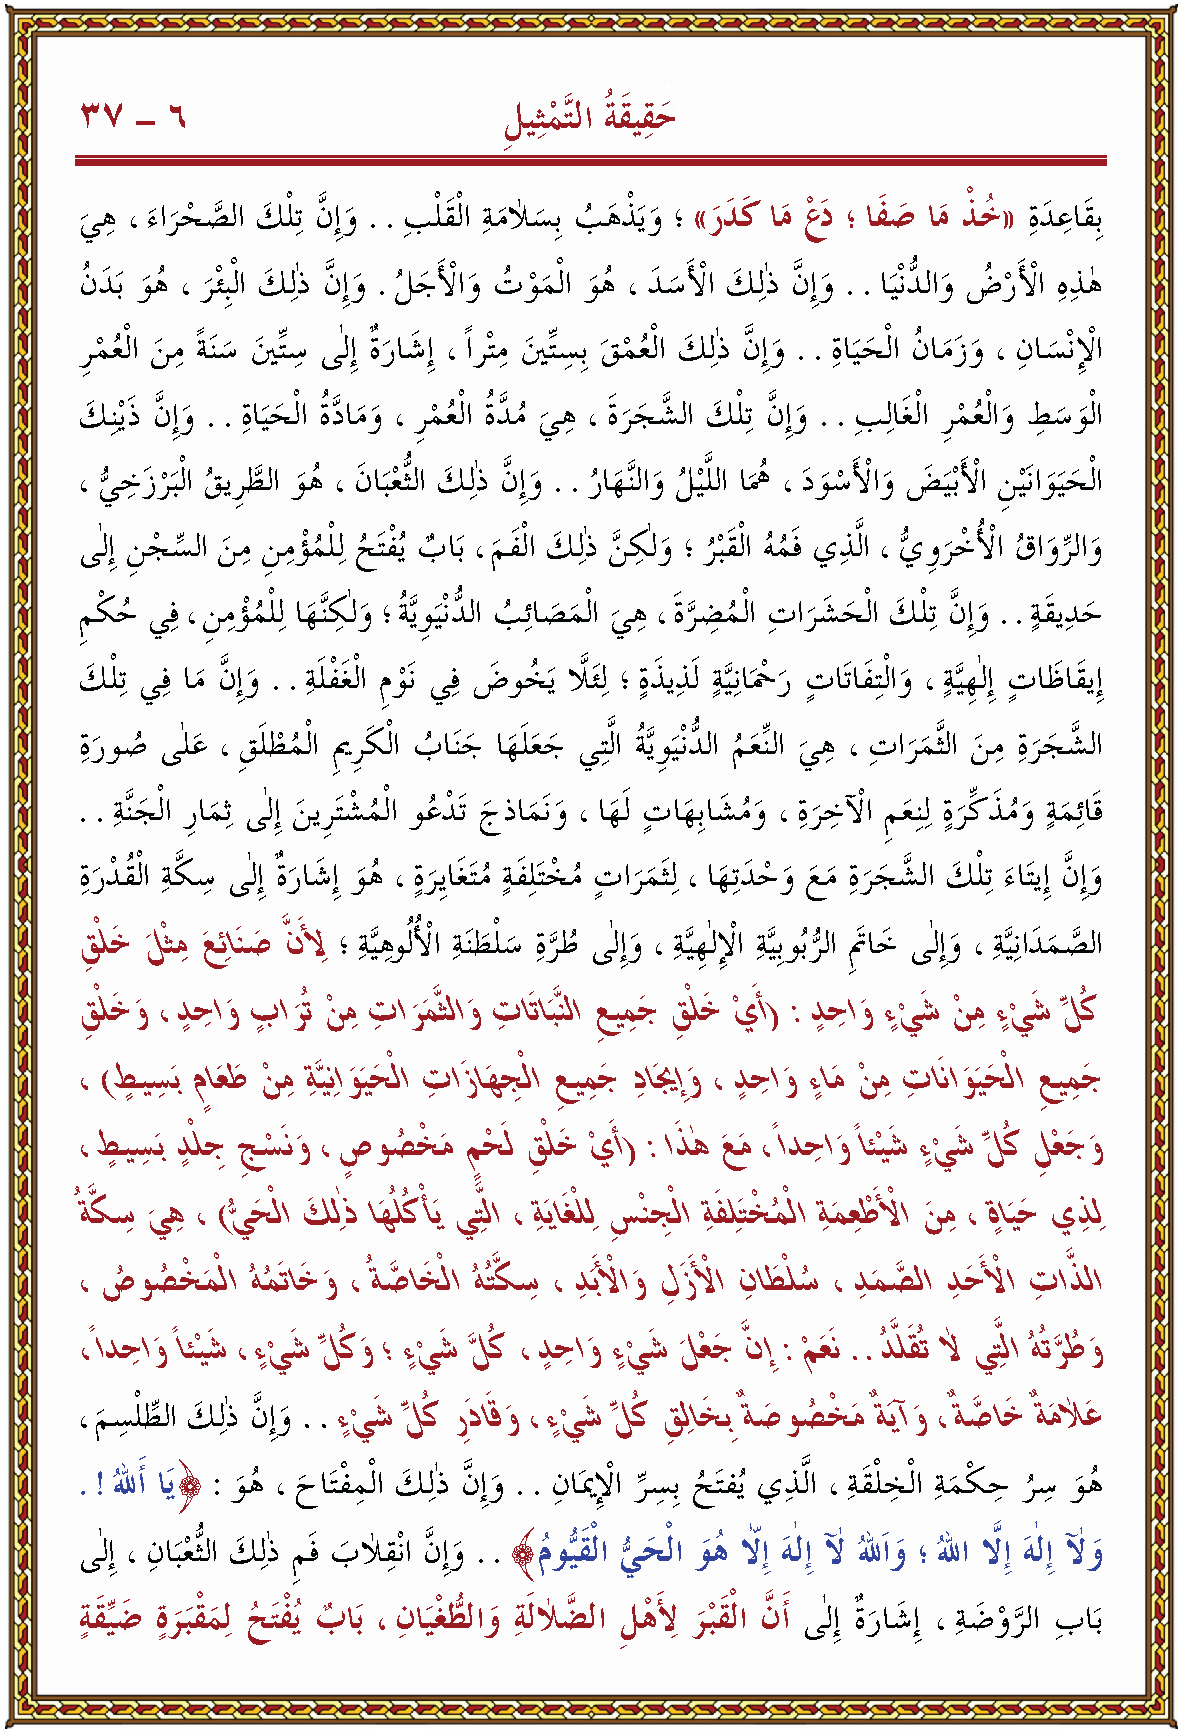 حَقِيقَةُ التَّمْثِيلِ ٦ – ٣٧
بِقَاعِدَةِ «خُذْ مَا صَفَا ؛ دَعْ مَا كَدَرَ» ؛ وَيَذْهَبُ بِسَلَامَةِ الْقَلْبِ . . وَإِنَّ تِلْكَ الصَّحْرَاءَ ، هِيَ
هٰذِهِ الْأَرْضُ وَالدُّنْيَا . . وَإِنَّ ذٰلِكَ الْأَسَدَ ، هُوَ الْمَوْتُ وَالْأَجَلُ . وَإِنَّ ذٰلِكَ الْبِئْرَ ، هُوَ بَدَنُ
الْإِنْسَانِ ، وَزَمَانُ الْحَيَاةِ . . وَإِنَّ ذٰلِكَ الْعُمْقَ بِسِتِّينَ مِتْراً ، إِشَارَةٌ إِلٰى سِتِّينَ سَنَةً مِنَ الْعُمْرِ
الْوَسَطِ وَالْعُمْرِ الْغَالِبِ . . وَإِنَّ تِلْكَ الشَّجَرَةَ ، هِيَ مُدَّةُ الْعُمْرِ ، وَمَادَّةُ الْحَيَاةِ . . وَإِنَّ ذَيْنِكَ
الْحَيَوَانَيْنِ الْأَبْيَضَ وَالْأَسْوَدَ ، هُمَا اللَّيْلُ وَالنَّهَارُ . . وَإِنَّ ذٰلِكَ الثُّعْبَانَ ، هُوَ الطَّرِيقُ الْبَرْزَخِيُّ ،
وَالرِّوَاقُ الْأُخْرَوِيُّ ، الَّذِي فَمُهُ الْقَبْرُ ؛ وَلٰكِنَّ ذٰلِكَ الْفَمَ ، بَابٌ يُفْتَحُ لِلْمُؤْمِنِ مِنَ السِّجْنِ إِلٰى
حَدِيقَةٍ . . وَإِنَّ تِلْكَ الْحَشَرَاتِ الْمُضِرَّةَ ، هِيَ الْمَصَائِبُ الدُّنْيَوِيَّةُ ؛ وَلٰكِنَّهَا لِلْمُؤْمِنِ ، فِي حُكْمِ
إِيقَاظَاتٍ إِلٰهِيَّةٍ ، وَالْتِفَاتَاتٍ رَحْمَانِيَّةٍ لَذِيذَةٍ ؛ لِئَلَّا يَخُوضَ فِي نَوْمِ الْغَفْلَةِ . . وَإِنَّ مَا فِي تِلْكَ
الشَّجَرَةِ مِنَ الثَّمَرَاتِ ، هِيَ النِّعَمُ الدُّنْيَوِيَّةُ الَّتِي جَعَلَهَا جَنَابُ الْكَرِيمِ الْمُطْلَقِ ، عَلٰى صُورَةِ
قَائِمَةٍ وَمُذَكِّرَةٍ لِنِعَمِ الْآخِرَةِ ، وَمُشَابِهَاتٍ لَهَا ، وَنَمَاذِجَ تَدْعُو الْمُشْتَرِينَ إِلٰى ثِمَارِ الْجَنَّةِ . .
وَإِنَّ إِيتَاءَ تِلْكَ الشَّجَرَةِ مَعَ وَحْدَتِهَا ، لِثَمَرَاتٍ مُخْتَلِفَةٍ مُتَغَايِرَةٍ ، هُوَ إِشَارَةٌ إِلٰى سِكَّةِ الْقُدْرَةِ
الصَّمَدَانِيَّةِ ، وَإِلٰى خَاتَمِ الرُّبُوبِيَّةِ الْإِلٰهِيَّةِ ، وَإِلٰى طُرَّةِ سَلْطَنَةِ الْأُلُوهِيَّةِ ؛ لِأَنَّ صَنَائِعَ مِثْلَ خَلْقِ
كُلِّ شَيْءٍ مِنْ شَيْءٍ وَاحِدٍ : (أَيْ خَلْقِ جَمِيعِ النَّبَاتَاتِ وَالثَّمَرَاتِ مِنْ تُرَابٍ وَاحِدٍ ، وَخَلْقِ
جَمِيعِ الْحَيَوَانَاتِ مِنْ مَاءٍ وَاحِدٍ ، وَإِيجَادِ جَمِيعِ الْجِهَازَاتِ الْحَيَوَانِيَّةِ مِنْ طَعَامٍ بَسِيطٍ) ،
وَجَعْلِ كُلِّ شَيْءٍ شَيْئاً وَاحِداً ، مَعَ هٰذَا : (أَيْ خَلْقِ لَحْمٍ مَخْصُوصٍ ، وَنَسْجِ جِلْدٍ بَسِيطٍ ،
لِذِي حَيَاةٍ ، مِنَ الْأَطْعِمَةِ الْمُخْتَلِفَةِ الْجِنْسِ لِلْغَايَةِ ، الَّتِي يَأْكُلُهَا ذٰلِكَ الْحَيُّ) ، هِيَ سِكَّةُ
الذَّاتِ الْأَحَدِ الصَّمَدِ ، سُلْطَانِ الْأَزَلِ وَالْأَبَدِ ، سِكَّتُهُ الْخَاصَّةُ ، وَخَاتَمُهُ الْمَخْصُوصُ ،
وَطُرَّتُهُ الَّتِي لَا تُقَلَّدُ . . نَعَمْ : إِنَّ جَعْلَ شَيْءٍ وَاحِدٍ ، كُلَّ شَيْءٍ ؛ وَكُلِّ شَيْءٍ ، شَيْئاً وَاحِداً ،
عَلَامَةٌ خَاصَّةٌ ، وَآيَةٌ مَخْصُوصَةٌ بِخَالِقِ كُلِّ شَيْءٍ ، وَقَادَرِ كُلِّ شَيْءٍ . . وَإِنَّ ذٰلِكَ الطِّلْسِمَ ،
هُوَ سِرُّ حِكْمَةِ الْخِلْقَةِ ، الَّذِي يُفْتَحُ بِسِرِّ الْإِيمَانِ . . وَإِنَّ ذٰلِكَ الْمِفْتَاحَ ، هُوَ : ﴿يَا أَللهُ ! .
وَلٰآ إِلٰهَ إِلَّا اللهُ ؛ وَاَللهُ لٰآ إِلٰهَ إِلّا هُوَ الْحَيُّ الْقَيُّومُ﴾ . . وَإِنَّ انْقِلَابَ فَمِ ذٰلِكَ الثُّعْبَانِ ، إِلٰى
بَابِ الرَّوْضَةِ ، إِشَارَةٌ إِلٰى أَنَّ الْقَبْرَ لِأَهْلِ الضَّلَالَةِ وَالطُّغْيَانِ ، بَابٌ يُفْتَحُ لِمَقْبَرَةٍ ضَيِّقَةٍ